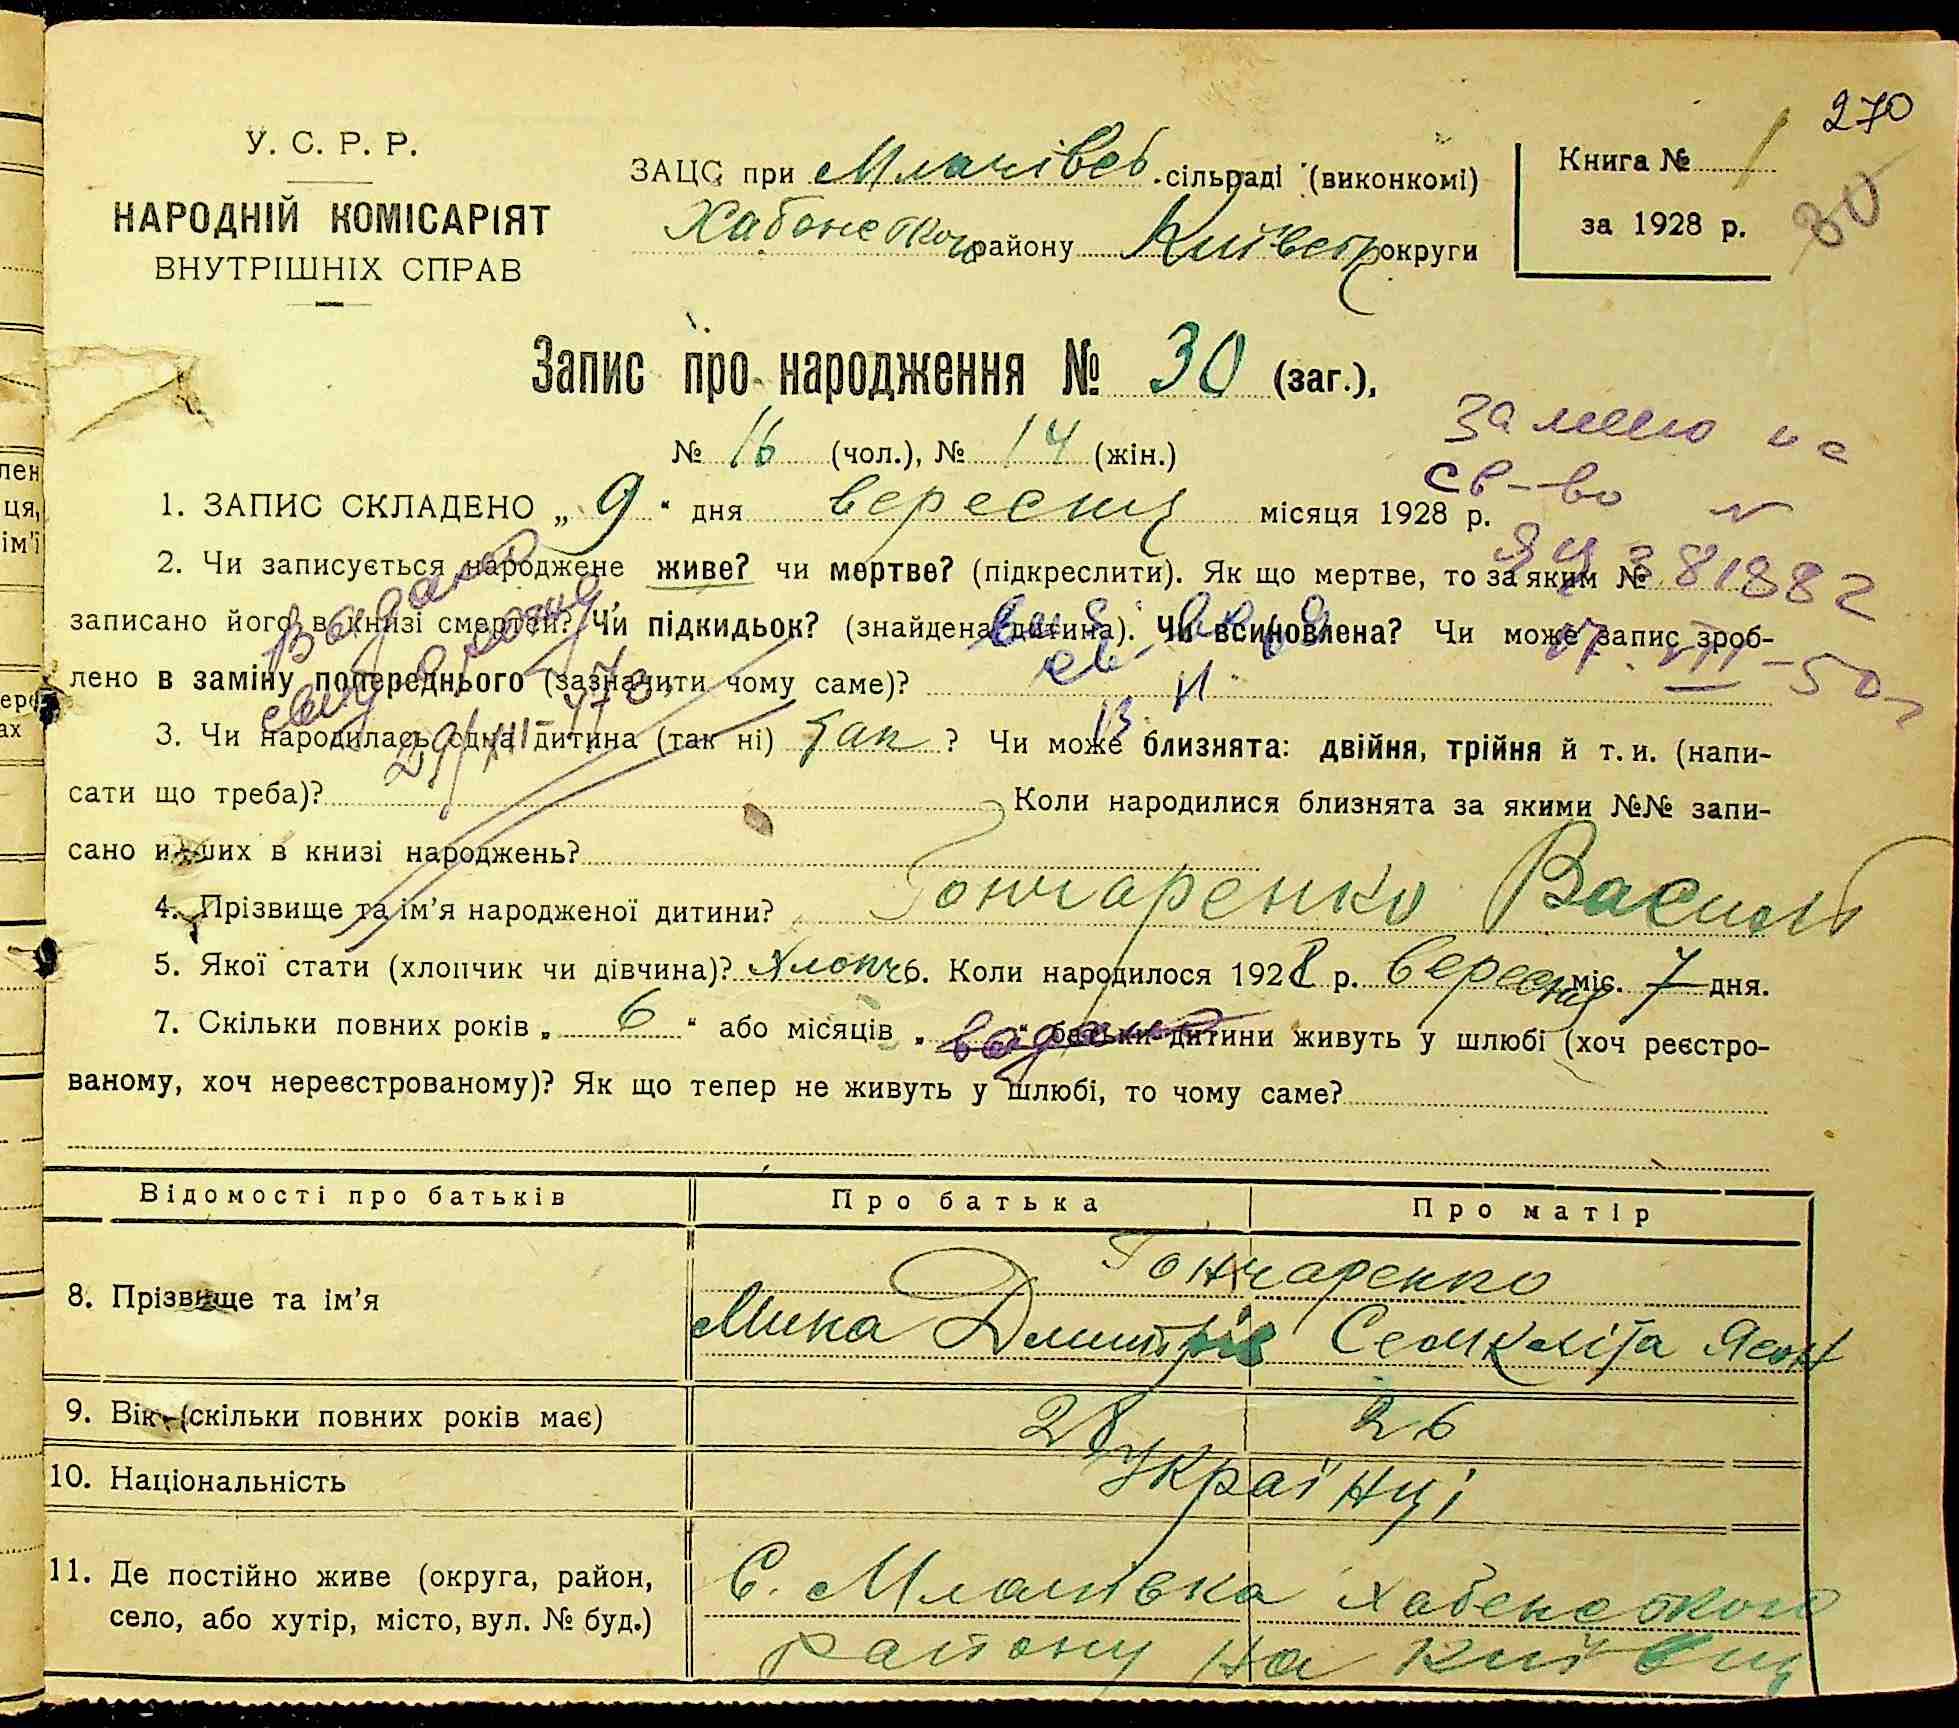 270
У. С. Р. Р.
НАРОДНІЙ КОМІСАРІЯТ
ВНУТРІШНІХ СПРАВ
ЗАЦС при Млачівсь. сільраді (виконкомі)
Хабенського району Київськ округи
Книга № 1
за 1928 р.
30
Запис про народження № 30 (заг.),
№ 16 (чол.), № 14 (жін.)
1. ЗАПИС СКЛАДЕНО „ 9 “ дня вересня місяця 1928 р.
2. Чи записується народжене живе? чи мертве? (підкреслити). Як що мертве, то за яким №
записано його в книзі смертей? Чи підкидьок? (знайдена дитина). Чи всиновлена? Чи може запис зроб-
лено в заміну попереднього (зазначити чому саме)?
3. Чи народилась одна дитина (так ні) Так ? Чи може близнята: двійня, трійня й т. и. (напи-
сати що треба)? Коли народилися близнята за якими №№ запи-
сано инших в книзі народжень?
4. Прізвище та ім’я народженої дитини? Гончаренко Василь
5. Якої стати (хлопчик чи дівчина)? Хлопч 6. Коли народилося 1928 р. вересня міс. 7 дня.
7. Скільки повних років „ 6 “ або місяців „ “ батьки дитини живуть у шлюбі (хоч реєстро-
ваному, хоч нереєстрованому)? Як що тепер не живуть у шлюбі, то чому саме?
св-во №
ЯЦ 381882
17. VIII-50
29/XII-47 р.
Відомості про батьків
Про батька
Про матір
8. Прізвище та ім’я
Гончаренко
Мина Дмитрів
9. Вік (скільки повних років має)
28
26
10. Національність
Українці
11. Де постійно живе (округа, район,
село, або хутір, місто, вул. № буд.)
С. Млачівка Хабенського
району на Київщ